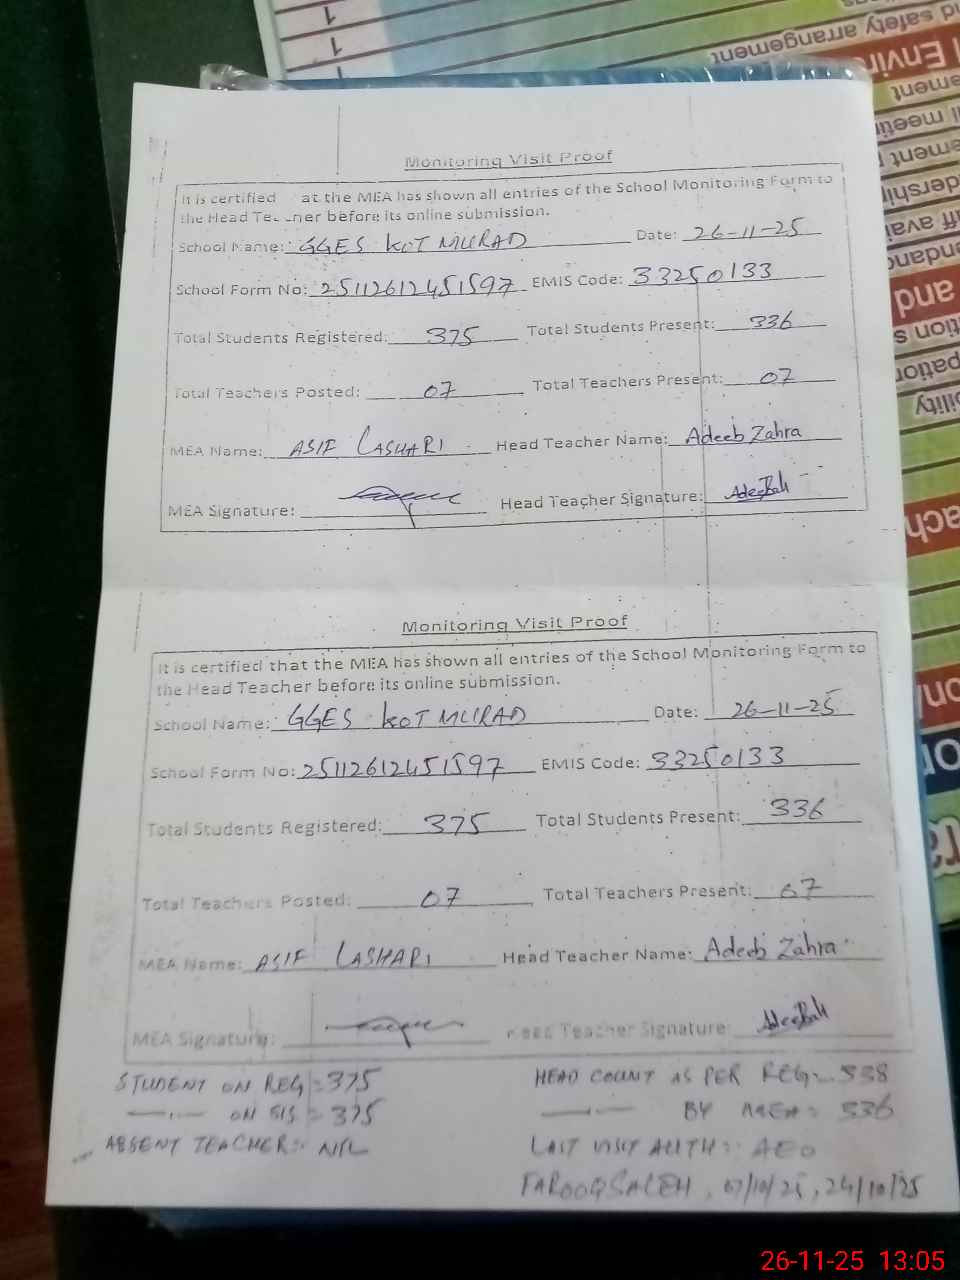 Monitoring Visit Proof
It is certified at the MEA has shown all entries of the School Monitoring Form to
the Head Teacher before its online submission.
School Name: GGES KOT MURAD Date: 26-11-25
School Form No: 25112612451597 EMIS Code: 33250133
Total Students Registered: 375 Total Students Present: 336
Total Teachers Posted: 07 Total Teachers Present: 07
MEA Name: ASIF LASHARI Head Teacher Name: Adeeb Zahra
MEA Signature: Head Teacher Signature:
Monitoring Visit Proof
It is certified that the MEA has shown all entries of the School Monitoring Form to
the Head Teacher before its online submission.
School Name: GGES KOT MURAD Date: 26-11-25
School Form No: 25112612451597 EMIS Code: 33250133
Total Students Registered: 375 Total Students Present: 336
Total Teachers Posted: 07 Total Teachers Present: 07
MEA Name: ASIF LASHARI Head Teacher Name: Adeeb Zahra
MEA Signature: Head Teacher Signature:
STUDENT ON REG = 375 HEAD COUNT AS PER REG: 338
—"— ON SIS = 375 —"— BY MEA = 336
ABSENT TEACHER:- NIL LAST VISIT AUTH:- AEO
FAROOQ SALEH, 07/10/25, 24/10/25
and safety arrangement
26-11-25 13:05